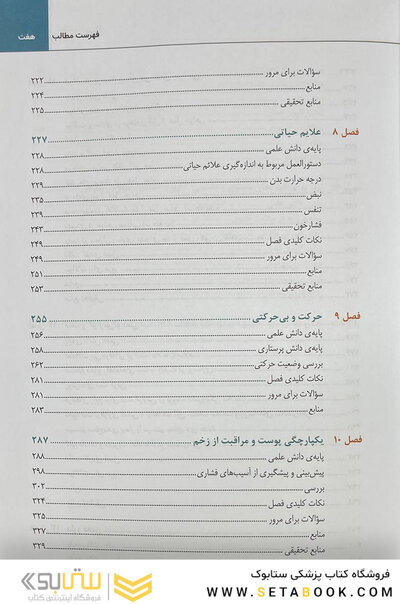 فهرست مطالب هفت
سؤالات برای مرور ۲۲۲
منابع ۲۲۴
منابع تحقیقی ۲۲۵
فصل ۸ علایم حیاتی ۲۲۷
پایه‌ی دانش علمی ۲۲۸
دستورالعمل مربوط به اندازه‌گیری علائم حیاتی ۲۲۸
درجه حرارت بدن ۲۲۹
نبض ۲۳۵
تنفس ۲۳۹
فشارخون ۲۴۳
نکات کلیدی فصل ۲۴۹
سؤالات برای مرور ۲۴۹
منابع ۲۵۱
منابع تحقیقی ۲۵۳
فصل ۹ حرکت و بی‌حرکتی ۲۵۵
پایه‌ی دانش علمی ۲۵۶
پایه‌ی دانش پرستاری ۲۵۸
بررسی وضعیت حرکتی ۲۶۲
نکات کلیدی فصل ۲۸۱
سؤالات برای مرور ۲۸۱
منابع ۲۸۳
فصل ۱۰ یکپارچگی پوست و مراقبت از زخم ۲۸۷
پایه‌ی دانش علمی ۲۸۸
پیش‌بینی و پیشگیری از آسیب‌های فشاری ۲۹۸
بررسی ۳۰۲
نکات کلیدی فصل ۳۲۴
سؤالات برای مرور ۳۲۵
منابع ۳۲۷
منابع تحقیقی ۳۲۹
فروشگاه کتاب پزشکی ستابوک
www.SETABOOK.com
ستابوک
فروشگاه اینترنتی کتاب